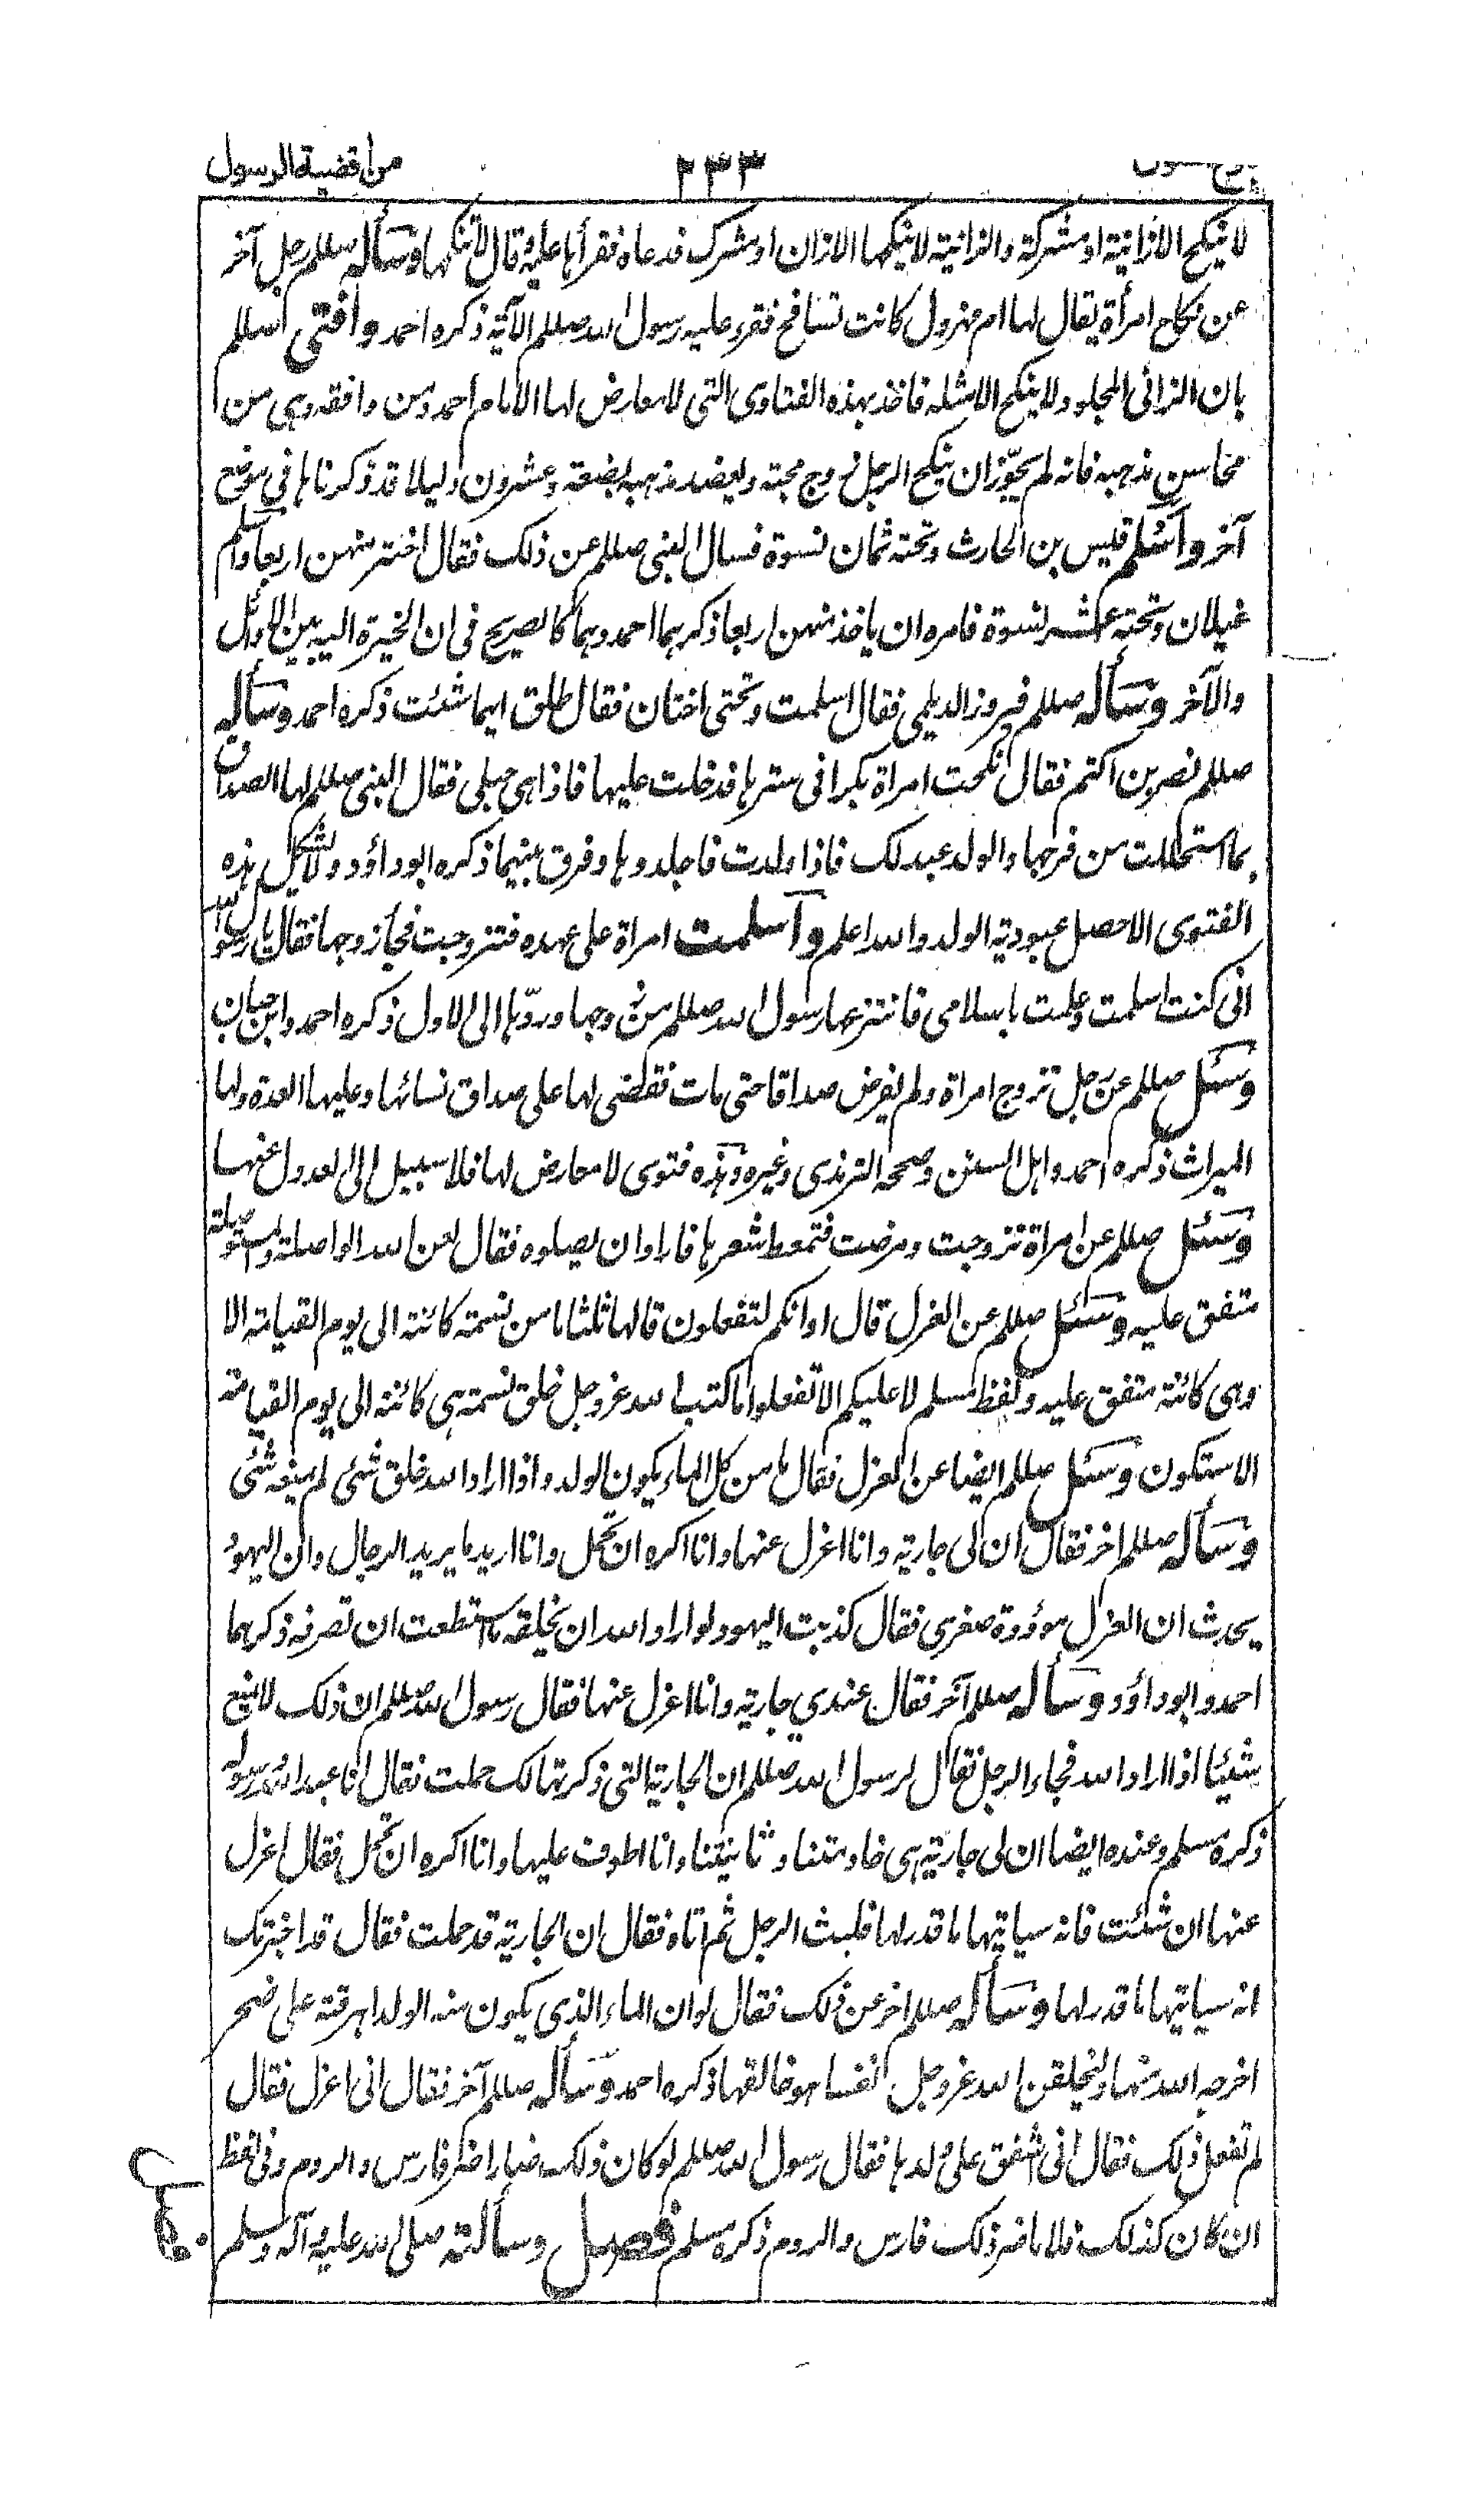 من اقضية الرسول
٢٣٣
لا ينكح الا زانية او مشركة والزانية لا ينكحها الا زان او مشرك فدعاه فقرأها عليه وقال لا تنكحها وسأله صللم رجل آخر
عن نكاح امرأة يقال لها ام مهزول كانت تسافح فقرء عليه رسول الله صللم الآية ذكره احمد وافتى صللم
بان الزانى المجلود لا ينكح الا مثله فاخذ بهذه الفتاوى التى لا معارض لها الامام احمد ومن وافقه وهى من
محاسن مذهبه فانه لم يجوّز ان ينكح الرجل زوج قحبة ويعضد مذهبه بضعة وعشرون دليلا قد ذكرناها فى موضع
آخر وأسلم قيس بن الحارث وتحته ثمان نسوة فسال النبى صللم عن ذلك فقال اختر منهن اربعا وأسلم
غيلان وتحته عشر نسوة فامره ان ياخذ منهن اربعا ذكرهما احمد وهما كالصريح فى ان الخيرة اليه بين الاوائل
والآخر وسأله صللم فيروز الديلمى فقال اسلمت وتحتى اختان فقال طلق ايهما شئت ذكره احمد وسأله
صللم نصر بن اكتم فقال نكحت امراة بكرا فى سترها فدخلت عليها فاذا هى حبلى فقال النبى صللم لها الصداق
بما استحللت من فرجها والولد عبد لك فاذا ولدت فاجلدوها وفرق بينهما ذكره ابوداؤد ولا يشكل هذه
الفتوى الا حصل عبودية الولد والله اعلم وأسلمت امراة على عهده فتزوجت فجأ زوجها فقال يا رسول الله
انى كنت اسلمت وعلمت باسلامى فانتزعها رسول الله صللم من زوجها وردّها الى الاول ذكره احمد وابن حبان
وسئل صللم عن رجل تزوج امراة ولم يفرض صداقا حتى مات فقضى لها على صداق نسائها وعليها العدة ولها
الميراث ذكره احمد واهل السنن وصححه الترمذى وغيره وهذه فتوى لا معارض لها فلا سبيل الى العدول عنها
وسئل صللم عن امراة تزوجت ومرضت فتمعط شعرها فارادوا ان يصلوه فقال لعن الله الواصلة والمستوصلة
متفق عليه وسئل صللم عن العزل قال او انكم لتفعلون قالها ثلثا ما من نسمة كائنة الى يوم القيامة الا
وهى كائنة متفق عليه ولفظ مسلم لا عليكم الا تفعلوا ما كتب الله عزوجل خلق نسمة هى كائنة الى يوم القيامة
الا ستكون وسئل صللم ايضا عن العزل فقال ما من كل الماء يكون الولد واذا اراد الله خلق شئ لم يمنعه شئ
وسأله صللم اخر فقال ان لى جارية وانا اعزل عنها وانا اكره ان تحمل وانا اريد ما يريد الرجال وان اليهود
يحدث ان العزل موؤودة صغرى فقال كذبت اليهود لو اراد الله ان يخلقه ما استطعت ان تصرفه ذكرهما
احمد وابوداؤد وسأله صللم آخر فقال عندى جارية وانا اعزل عنها فقال رسول الله صللم ان ذلك لا يمنع
شيئا اذا اراد الله فجاء الرجل فقال لرسول الله صللم ان الجارية التى ذكرتها لك حملت فقال انا عبد الله ورسوله
ذكره مسلم وعنده ايضا ان لى جارية هى خادمتنا وثانيتنا وانا اطوف عليها وانا اكره ان تحمل فقال اعزل
عنها ان شئت فانه سياتيها ما قدر لها فلبث الرجل ثم اتاه فقال ان الجارية قد حملت فقال قد اخبرتك
انه سياتيها ما قدر لها وسأله صللم اخر عن ذلك فقال لو ان الماء الذى يكون منه الولد اهرقته على صخر
اخرجه الله منها وليخلقن الله عزوجل نفسا هو خالقها ذكره احمد وسأله صللم آخر فقال انى اعزل فقال
لم تفعل ذلك فقال انى اشفق على ولدها فقال رسول الله صللم لو كان ذلك ضارا ضر فارس والروم وفى لفظ
ان كان كذلك فلا ما ضر ذلك فارس والروم ذكره مسلم فصل وسألته صلى الله عليه وآله وسلم